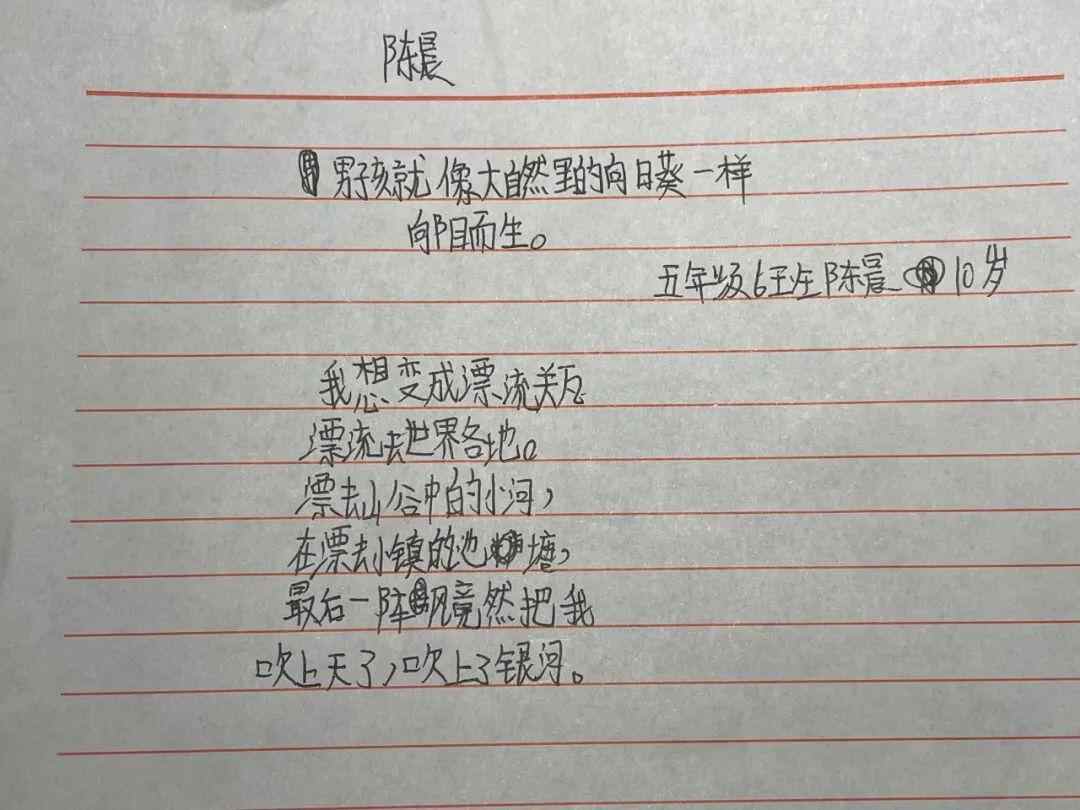 陈晨
男孩就像大自然里的向日葵一样
向阳而生。
五年级6班 陈晨 10岁
我想变成漂流瓶
漂流去世界各地。
漂去山谷中的小河，
在漂去小镇的池塘，
最后一阵风竟然把我
吹上天了，吹上了银河。